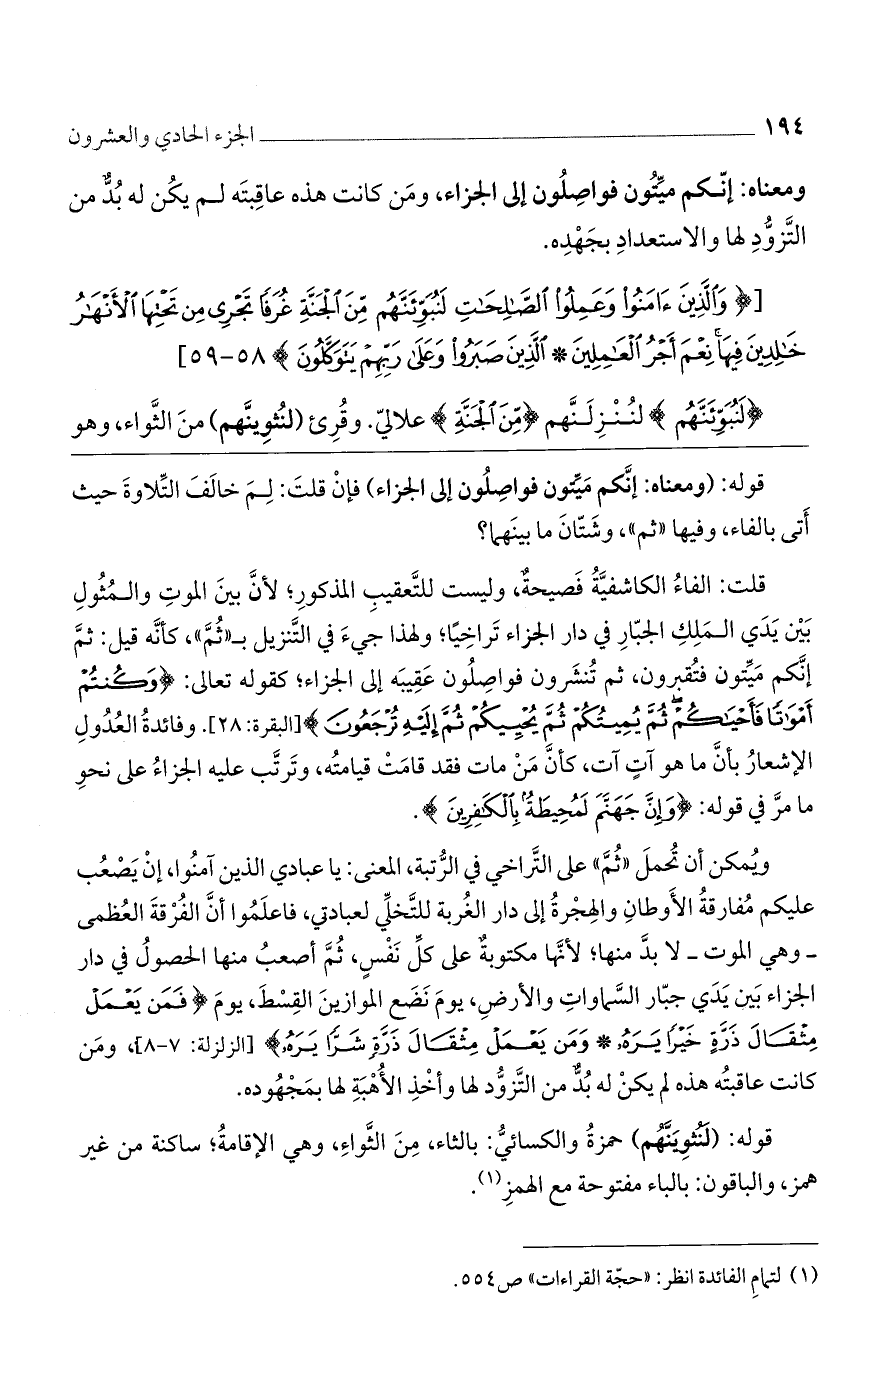 ١٩٤ ــــــ الجزء الحادي والعشرون
ومعناه: إنّكم ميِّتُون فواصِلُون إلى الجزاء، ومَن كانت هذه عاقِبتَه لم يكُن له بُدٌّ من
التَّزوُّدِ لها والاستعدادِ بجَهْدِه.
[﴿ وَٱلَّذِينَ ءَامَنُوا۟ وَعَمِلُوا۟ ٱلصَّـٰلِحَـٰتِ لَنُبَوِّئَنَّهُم مِّنَ ٱلْجَنَّةِ غُرَفًا تَجْرِى مِن تَحْتِهَا ٱلْأَنْهَـٰرُ
خَـٰلِدِينَ فِيهَا ۚ نِعْمَ أَجْرُ ٱلْعَـٰمِلِينَ * ٱلَّذِينَ صَبَرُوا۟ وَعَلَىٰ رَبِّهِمْ يَتَوَكَّلُونَ ﴾ ٥٨-٥٩]
﴿لَنُبَوِّئَنَّهُم ﴾ لنُنْزِلَنَّهم ﴿مِّنَ ٱلْجَنَّةِ ﴾ علاليّ. وقُرِئ (لنُثوِينَّهم) منَ الثَّواء، وهو
قوله: (ومعناه: إنَّكم مَيِّتون فواصِلُون إلى الجزاء) فإنْ قلتَ: لِمَ خالَفَ التِّلاوةَ حيث
أَتى بالفاء، وفيها «ثم»، وشَتّانَ ما بينَهما؟
قلت: الفاءُ الكاشفيَّةُ فَصيحةٌ، وليست للتَّعقيبِ المذكورِ؛ لأنَّ بينَ الموتِ والمُثُولِ
بَيْن يَدَي المَلِكِ الجبّارِ في دار الجزاء تَراخِيًا؛ ولهذا جيءَ في التَّنزيل بـ«ثُمَّ»، كأنَّه قيل: ثمَّ
إنَّكم مَيِّتون فتُقبرون، ثم تُنشَرون فواصِلُون عَقِيبَه إلى الجزاء؛ كقوله تعالى: ﴿وَكُنتُمْ
أَمْوَٰتًا فَأَحْيَـٰكُمْ ۖ ثُمَّ يُمِيتُكُمْ ثُمَّ يُحْيِيكُمْ ثُمَّ إِلَيْهِ تُرْجَعُونَ ﴾[البقرة: ٢٨]. وفائدةُ العُدُولِ
الإشعارُ بأنَّ ما هو آتٍ آت، كأنَّ مَنْ مات فقد قامَتْ قيامتُه، وتَرتَّب عليه الجزاءُ على نحوِ
ما مرَّ في قوله: ﴿وَإِنَّ جَهَنَّمَ لَمُحِيطَةٌۢ بِٱلْكَـٰفِرِينَ ﴾.
ويُمكن أن تُحملَ «ثُمَّ» على التَّراخي في الرُّتبة، المعنى: يا عبادي الذين آمنُوا، إنْ يَصْعُب
عليكم مُفارقةُ الأوطانِ والهِجْرةُ إلى دار الغُربة للتَّخلِّي لعبادتي، فاعلَمُوا أنَّ الفُرْقةَ العُظمى
ـ وهي الموت ـ لا بدَّ منها؛ لأنَّها مكتوبةٌ على كلِّ نَفْسٍ، ثُمَّ أصعبُ منها الحصولُ في دار
الجزاء بَين يَدَي جبّار السَّماواتِ والأرضِ، يومَ نَضَع الموازينَ القِسْطَ، يومَ ﴿ فَمَن يَعْمَلْ
مِثْقَالَ ذَرَّةٍ خَيْرًا يَرَهُۥ * وَمَن يَعْمَلْ مِثْقَالَ ذَرَّةٍ شَرًّا يَرَهُۥ﴾ [الزلزلة: ٧-٨]، ومَن
كانت عاقبتُه هذه لم يكنْ له بُدٌّ من التَّزوُّد لها وأخْذِ الأُهْبَةِ لها بمَجْهُوده.
قوله: (لَنُثوِيَنَّهُم) حمزةُ والكسائيُّ: بالثاء، مِنَ الثَّواءِ، وهي الإقامةُ؛ ساكنة من غير
همز، والباقون: بالباء مفتوحة مع الهمزِ(١).
(١) لتمامِ الفائدة انظر: «حجّة القراءات» ص٥٥٤.